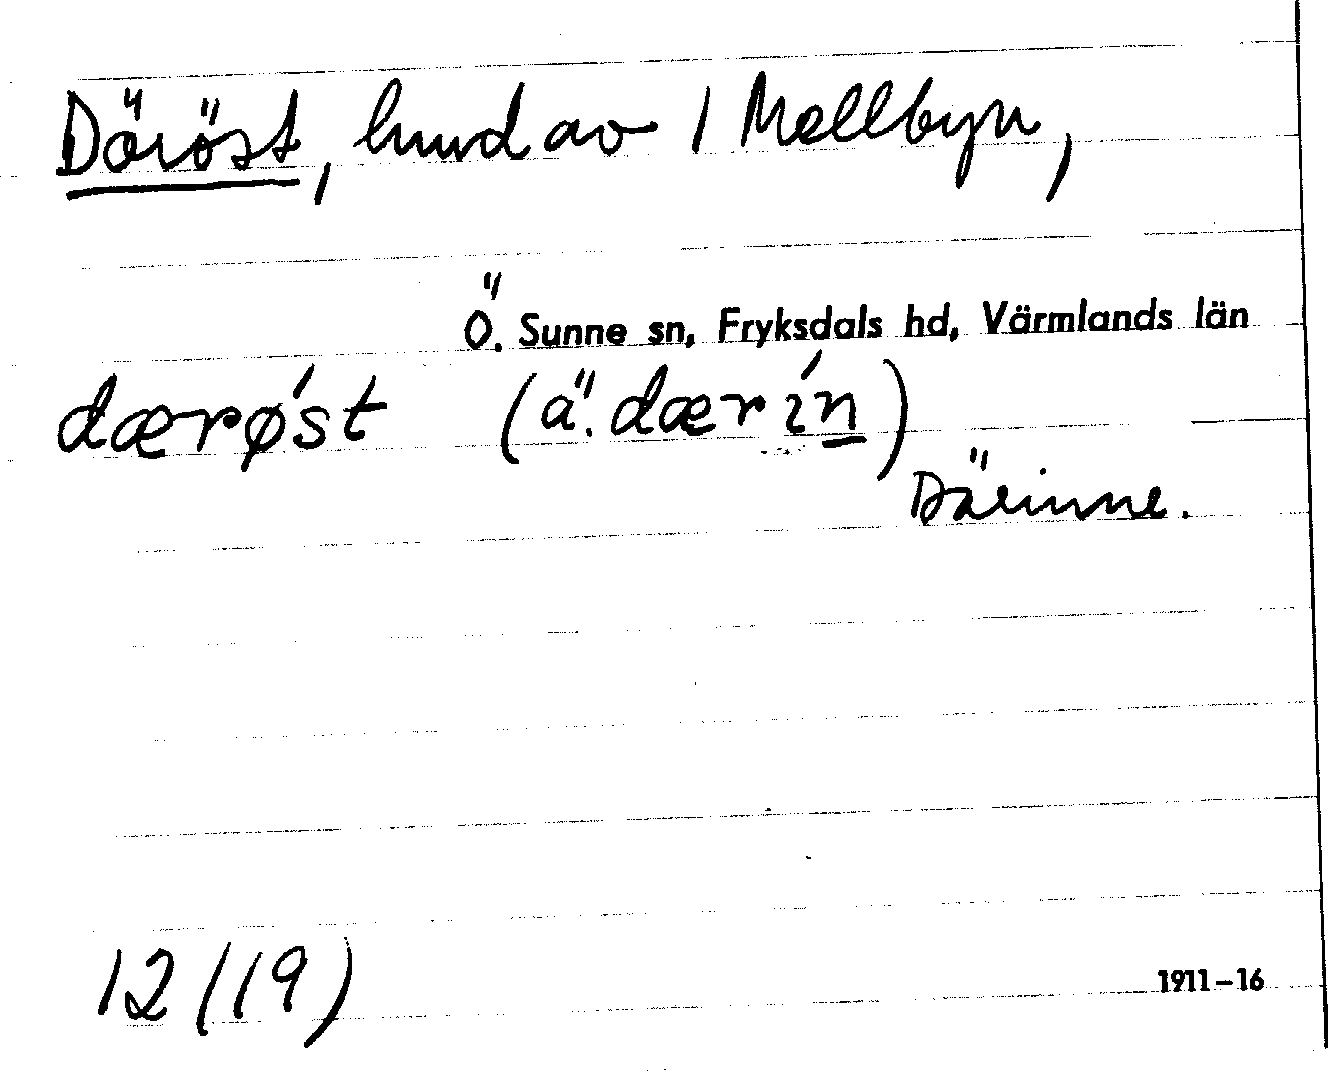 Däröst, hmd av 1 Mellbyn,
Ö. Sunne sn, Fryksdals hd, Värmlands län
dærǿst (ä. dærín)
Därinne.
12 (19)
1911–16